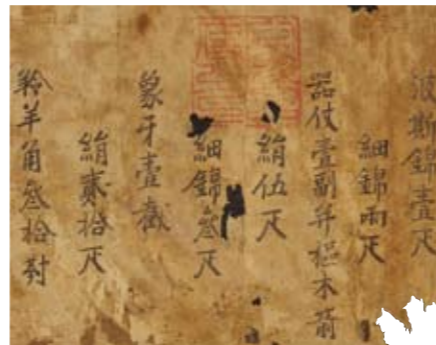 波斯錦壹疋
細錦兩疋
器仗壹副并柘木箭
絹伍疋
細錦叁疋
象牙壹截
絹貳拾疋
羚羊角叁拾對